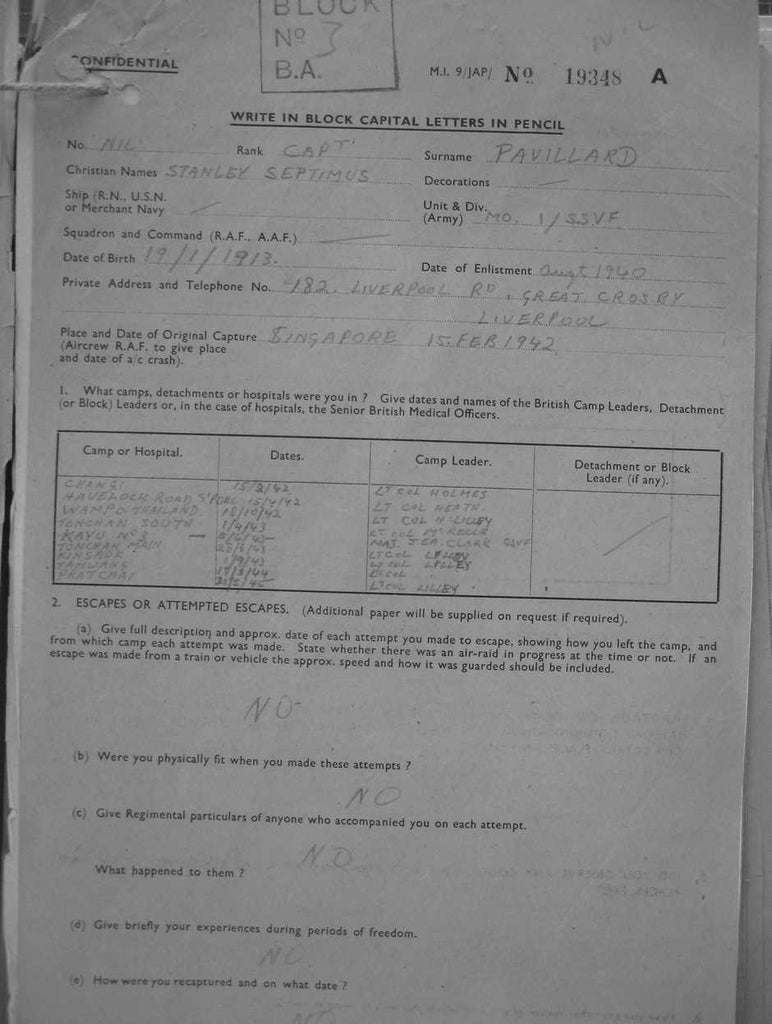 BLOCK
No 3
B.A.
CONFIDENTIAL
M.I. 9/JAP/ No 19348 A
WRITE IN BLOCK CAPITAL LETTERS IN PENCIL
No. NIL Rank CAPT' Surname PAVILLARD
Christian Names STANLEY SEPTIMUS Decorations —
Ship (R.N., U.S.N. or Merchant Navy —
Unit & Div. (Army) MO. 1/SSVF
Squadron and Command (R.A.F., A.A.F.) —
Date of Birth 19/1/1913. Date of Enlistment Augt 1940
Private Address and Telephone No. 182. LIVERPOOL RD, GREAT CROSBY
LIVERPOOL
Place and Date of Original Capture SINGAPORE 15.FEB 1942
(Aircrew R.A.F. to give place
and date of a/c crash).
1. What camps, detachments or hospitals were you in ? Give dates and names of the British Camp Leaders, Detachment
(or Block) Leaders or, in the case of hospitals, the Senior British Medical Officers.
Camp or Hospital. Dates. Camp Leader. Detachment or Block Leader (if any).
CHANGI 15/2/42 LT COL HOLMES
HAVELOCK ROAD S'PORE 15/4/42 LT COL HEATH.
WAMPO THAILAND 18/10/42 LT COL LILLEY
TONCHAN SOUTH 1/4/43 LT COL
KAYU No 3 — MAJ. CLARK SSVF
TONCHAN MAIN LT COL LILLEY
KINSAOK 1/9/43 LT COL LILLEY
TAMUANG LT COL
PRATCHAI 21/5/45 LT COL LILLEY
2. ESCAPES OR ATTEMPTED ESCAPES. (Additional paper will be supplied on request if required).
(a) Give full description and approx. date of each attempt you made to escape, showing how you left the camp, and
from which camp each attempt was made. State whether there was an air-raid in progress at the time or not. If an
escape was made from a train or vehicle the approx. speed and how it was guarded should be included.
NO
(b) Were you physically fit when you made these attempts ?
NO
(c) Give Regimental particulars of anyone who accompanied you on each attempt.
NO
What happened to them ?
(d) Give briefly your experiences during periods of freedom.
(e) How were you recaptured and on what date ?